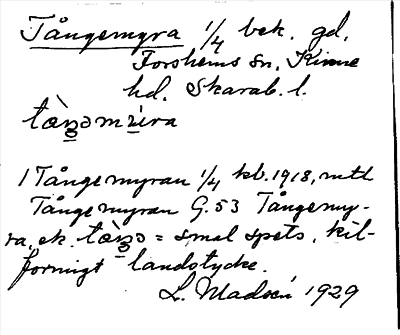 Tångemyra 1/4 bek. gd.
Forshems sn, Kinne
hd. Skarab. l.
tàŋəmy̠ra
/ Tångemyran 1/4 kb. 1918, mtl
Tångemyran G.53 Tångemy-
ra, ek. tàŋə = smal spets, kil-
formigt landstycke.
L. Madsén 1929